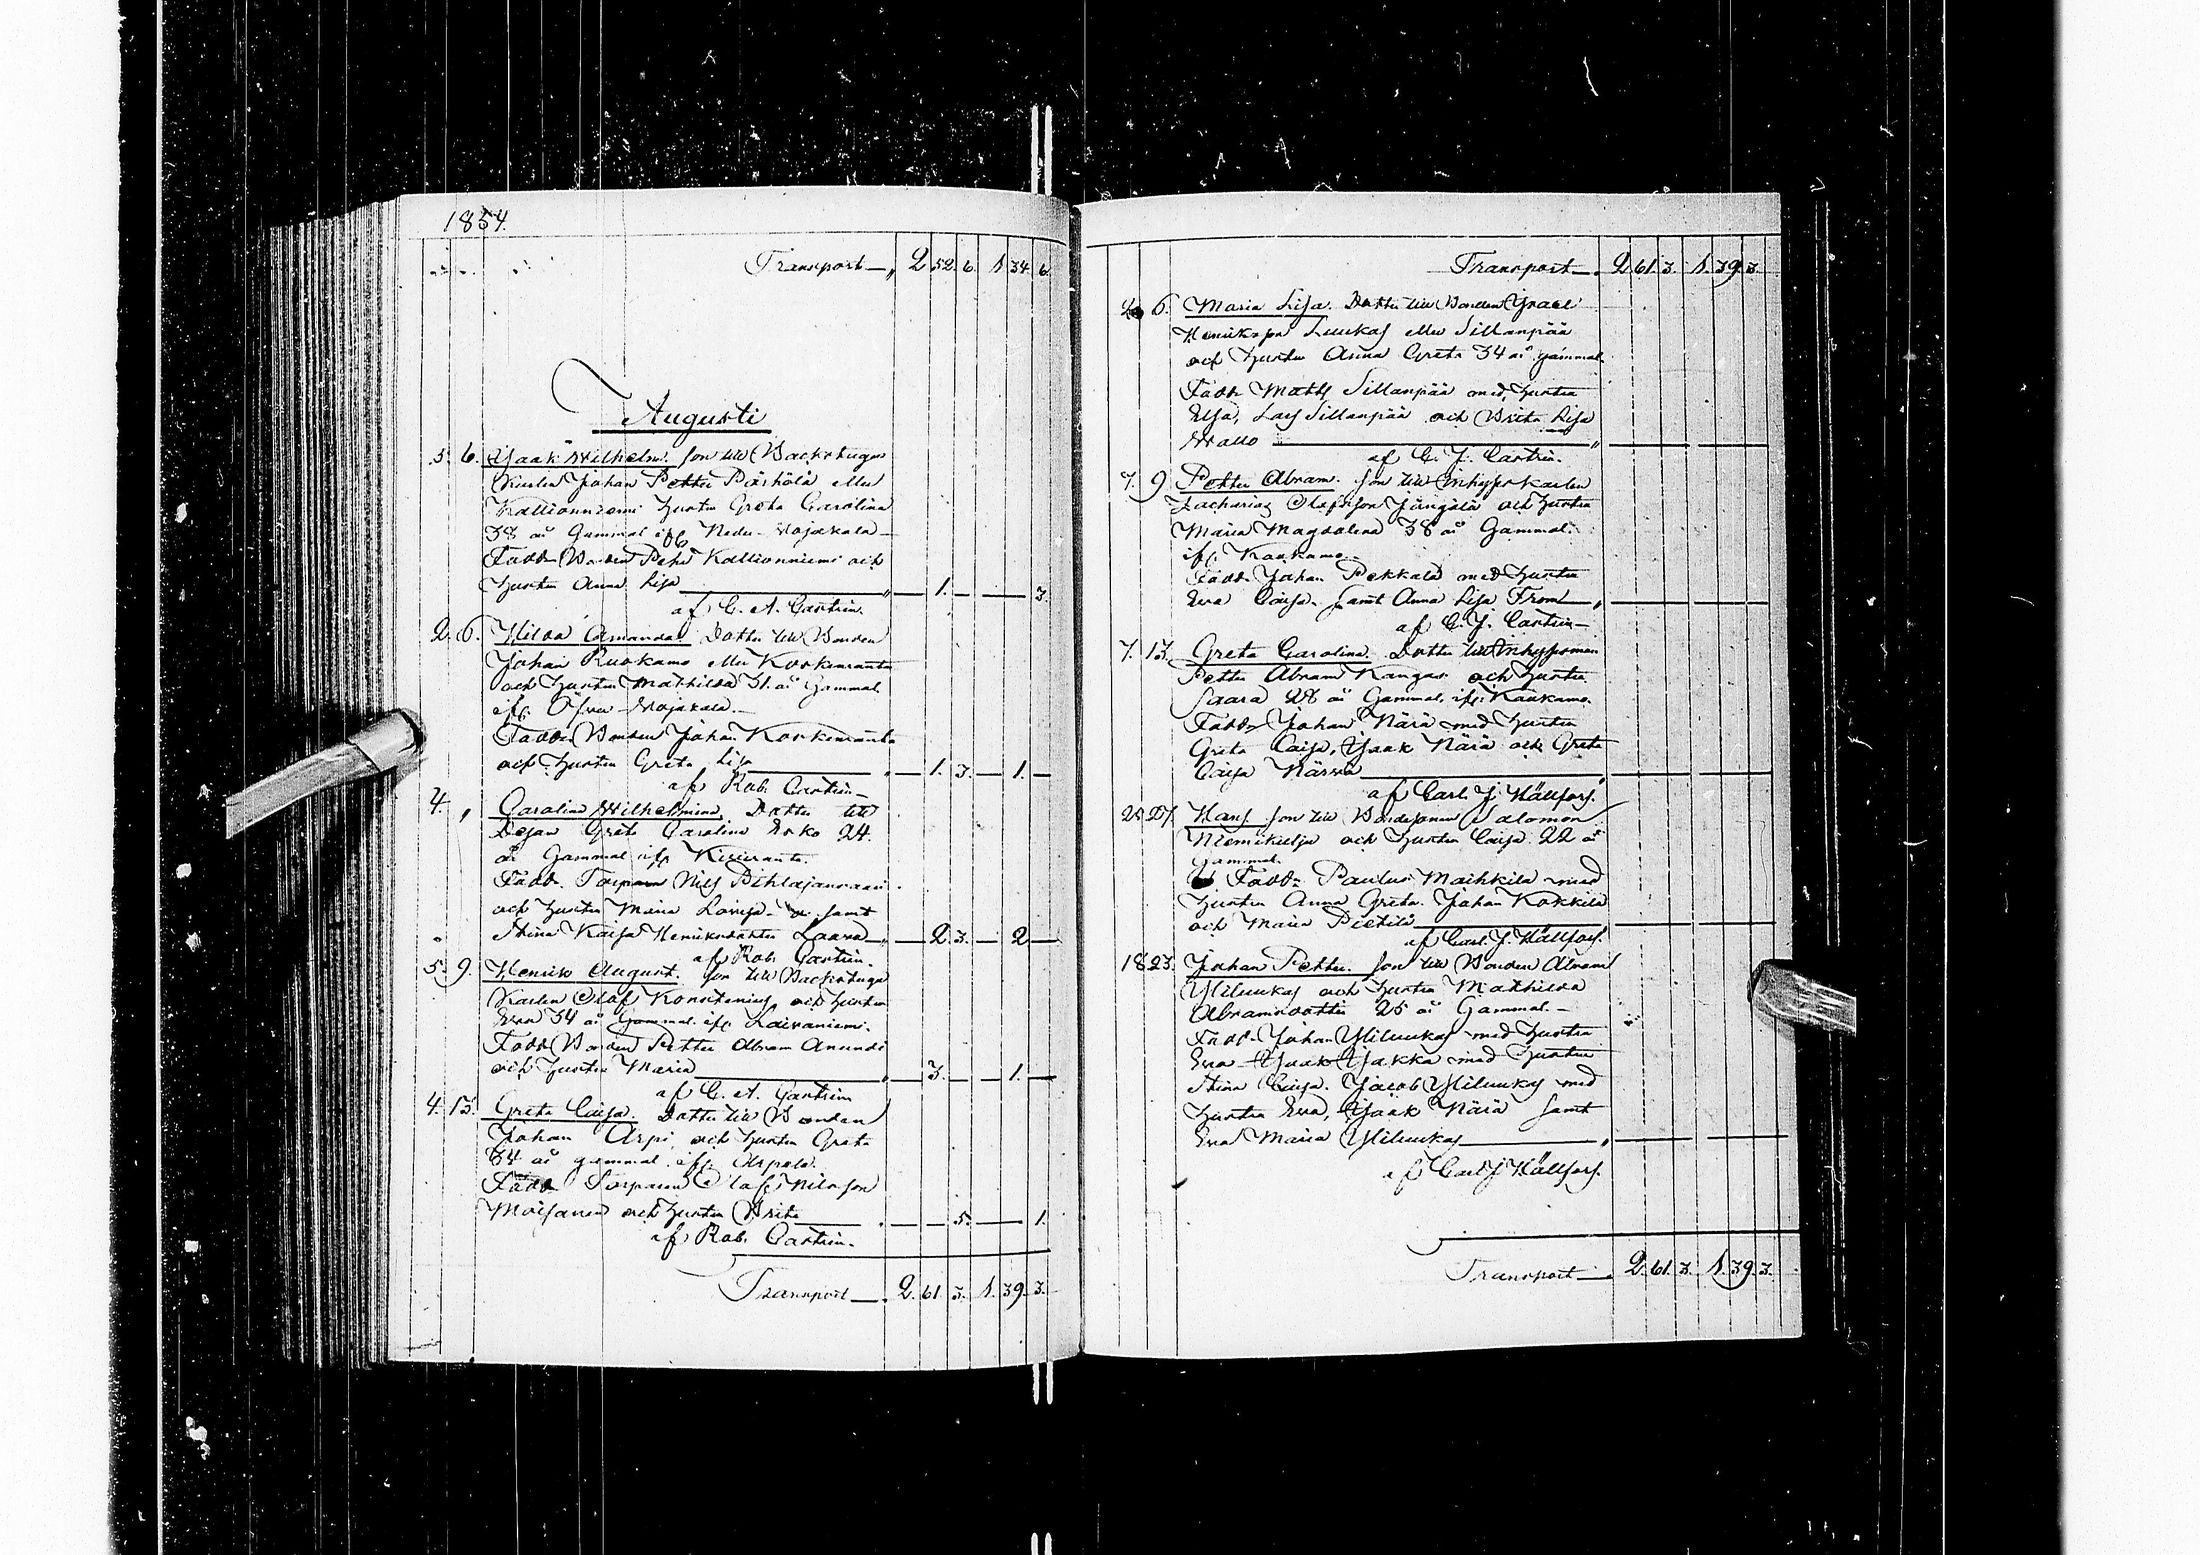 1854.
Transport —„ 2 52. 6. 1. 34. 6.
Augusti
3. 6. Isaak Wilhelm. Son till Backstugu
Karlen Johan Petter eller
Kallionniemi hustru Greta Carolina
38 år Gammal ifr. Neder-Vojakala —
Fadd. Bonden Petter Kallionniemi och
hustru Anna Lisa „ — 1. — — 3.
af C. A. Castrén.
2. 6. Hilda Amanda. Dotter till Bonden
Johan Ruokamo eller Koskenranta
och hustru Mathilda 31. år Gammal.
ifr. Öfver-Vojakala. —
Fadd. Bonden Johan Koskenranta
och hustru Greta Lisa „ — 1. 3. — 1. —
af Rob. Castrén —
4. „ Carolina Wilhelmina. Dotter till
Pigan Greta Carolina Erko 24.
år Gammal ifr. Kiviranta.
Fadd. Torparen Nils Pihlajamaa
och hustru Maria Lovisa samt
Stina Kaisa Henriksdotter Laara „ — 2. 3. — 2 —
af Rob. Castrén.
5. 9. Henrik August. Son till Backstugu
Karlen Olof Konstenius och hustru
Eva 34 år Gammal. ifr. Laivaniemi.
Fadd. Bonden Petter Abram Anundi
och hustru Maria „ — 3. — 1. —
af C. A. Castrén
4. 13. Greta Caisa. Dotter till Bonden
Johan Arpi och hustru Greta
34 år gammal. ifr. Arpela.
Fadd. Torparen Olaf Nilsson
Moisanen och hustru Brita — — 5. — 1.
af Rob. Castrén.
Transport —. 2. 61. 3. 1. 39. 3.
Transport —. 2 61. 3. 1. 39. 3.
6. Maria Lisa. Dotter till Bonden Israel
Henriksson Luukas eller Sillanpää
och hustru Anna Greta 34 år gammal.
Fadd. Matts Sillanpää med hustru
Elsa, Lars Sillanpää och Brita Lisa
Wallo „
af C. J. Castrén.
7. 9 Petter Abram. Son till Inhyses karlen
Zacharias Olofsson Jüngälä och hustru
Maria Magdalena 38 år Gammal.
ifr. Kaakamo —
Fadd. Johan Pekkala med hustru
Eva Caisa. samt Anna Lisa From — „
af C. J. Castrén —
7. 13. Greta Carolina. Dotter till Inhysesman
Petter Abram Kangas och hustru
Saara 28 år Gammal. ifr. Kaakamo.
Fadd. Johan Närä med hustru
Greta Caisa, Isaak Närä och Greta
Caisa „
af Carl J. Hällfors.
27. Hans. Son till Bondesonen Salomon
Niemikulju och hustru Caisa. 22 år
gammal.
Fadd. Paulus Maihkila med
hustru Anna Greta. Johan Kokkila
och Maria Pietilä
af Carl. J. Hällfors.
18 23. Johan Petter. Son till Bonden Abram
Yliluukas och hustru Mathilda
Abramsdotter 25 år Gammal. —
Fadd. Johan Yliluukas med hustru
Eva Isaak Jakka med hustru
Stina Caisa. Jacob Yliluukas med
hustru Eva, Isaak Närä samt
Eva Maria Yliluukas „
af Carl J Hällfors.
Transport —. 2. 61. 3. 1. 39. 3.